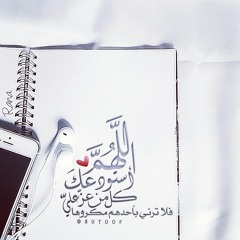 اللَّهُمَّ
أستودعك
كل من عز عليّ
فلا ترني بأحدهم مكروها
@BUTOOF
Rena